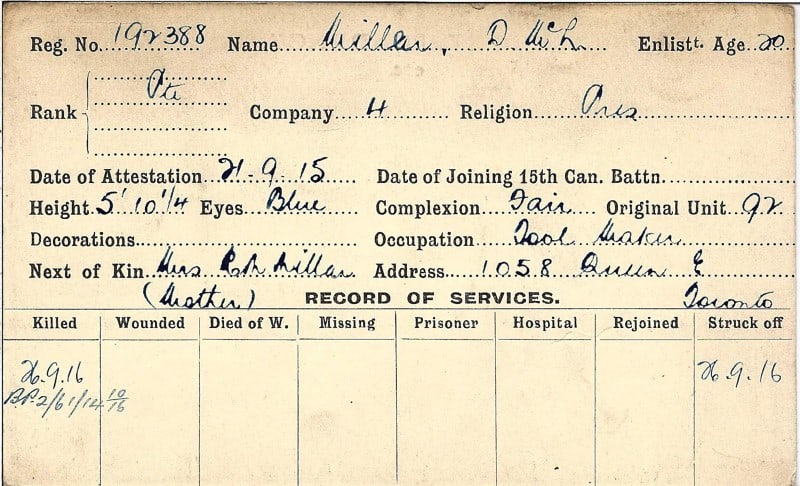 Reg. No. 192388 Name Millar, D. McL. Enlistt. Age 20
Rank Pte Company 4 Religion Pres
Date of Attestation 21-9-15 Date of Joining 15th Can. Battn.
Height 5' 10 1/4 Eyes Blue Complexion Fair Original Unit 92
Decorations Occupation Tool Maker
Next of Kin Mrs Millar Address 1058 Queen E
(Mother) RECORD OF SERVICES. Toronto
Killed Wounded Died of W. Missing Prisoner Hospital Rejoined Struck off
26.9.16 26.9.16
B.P. 2/61/14 10/16